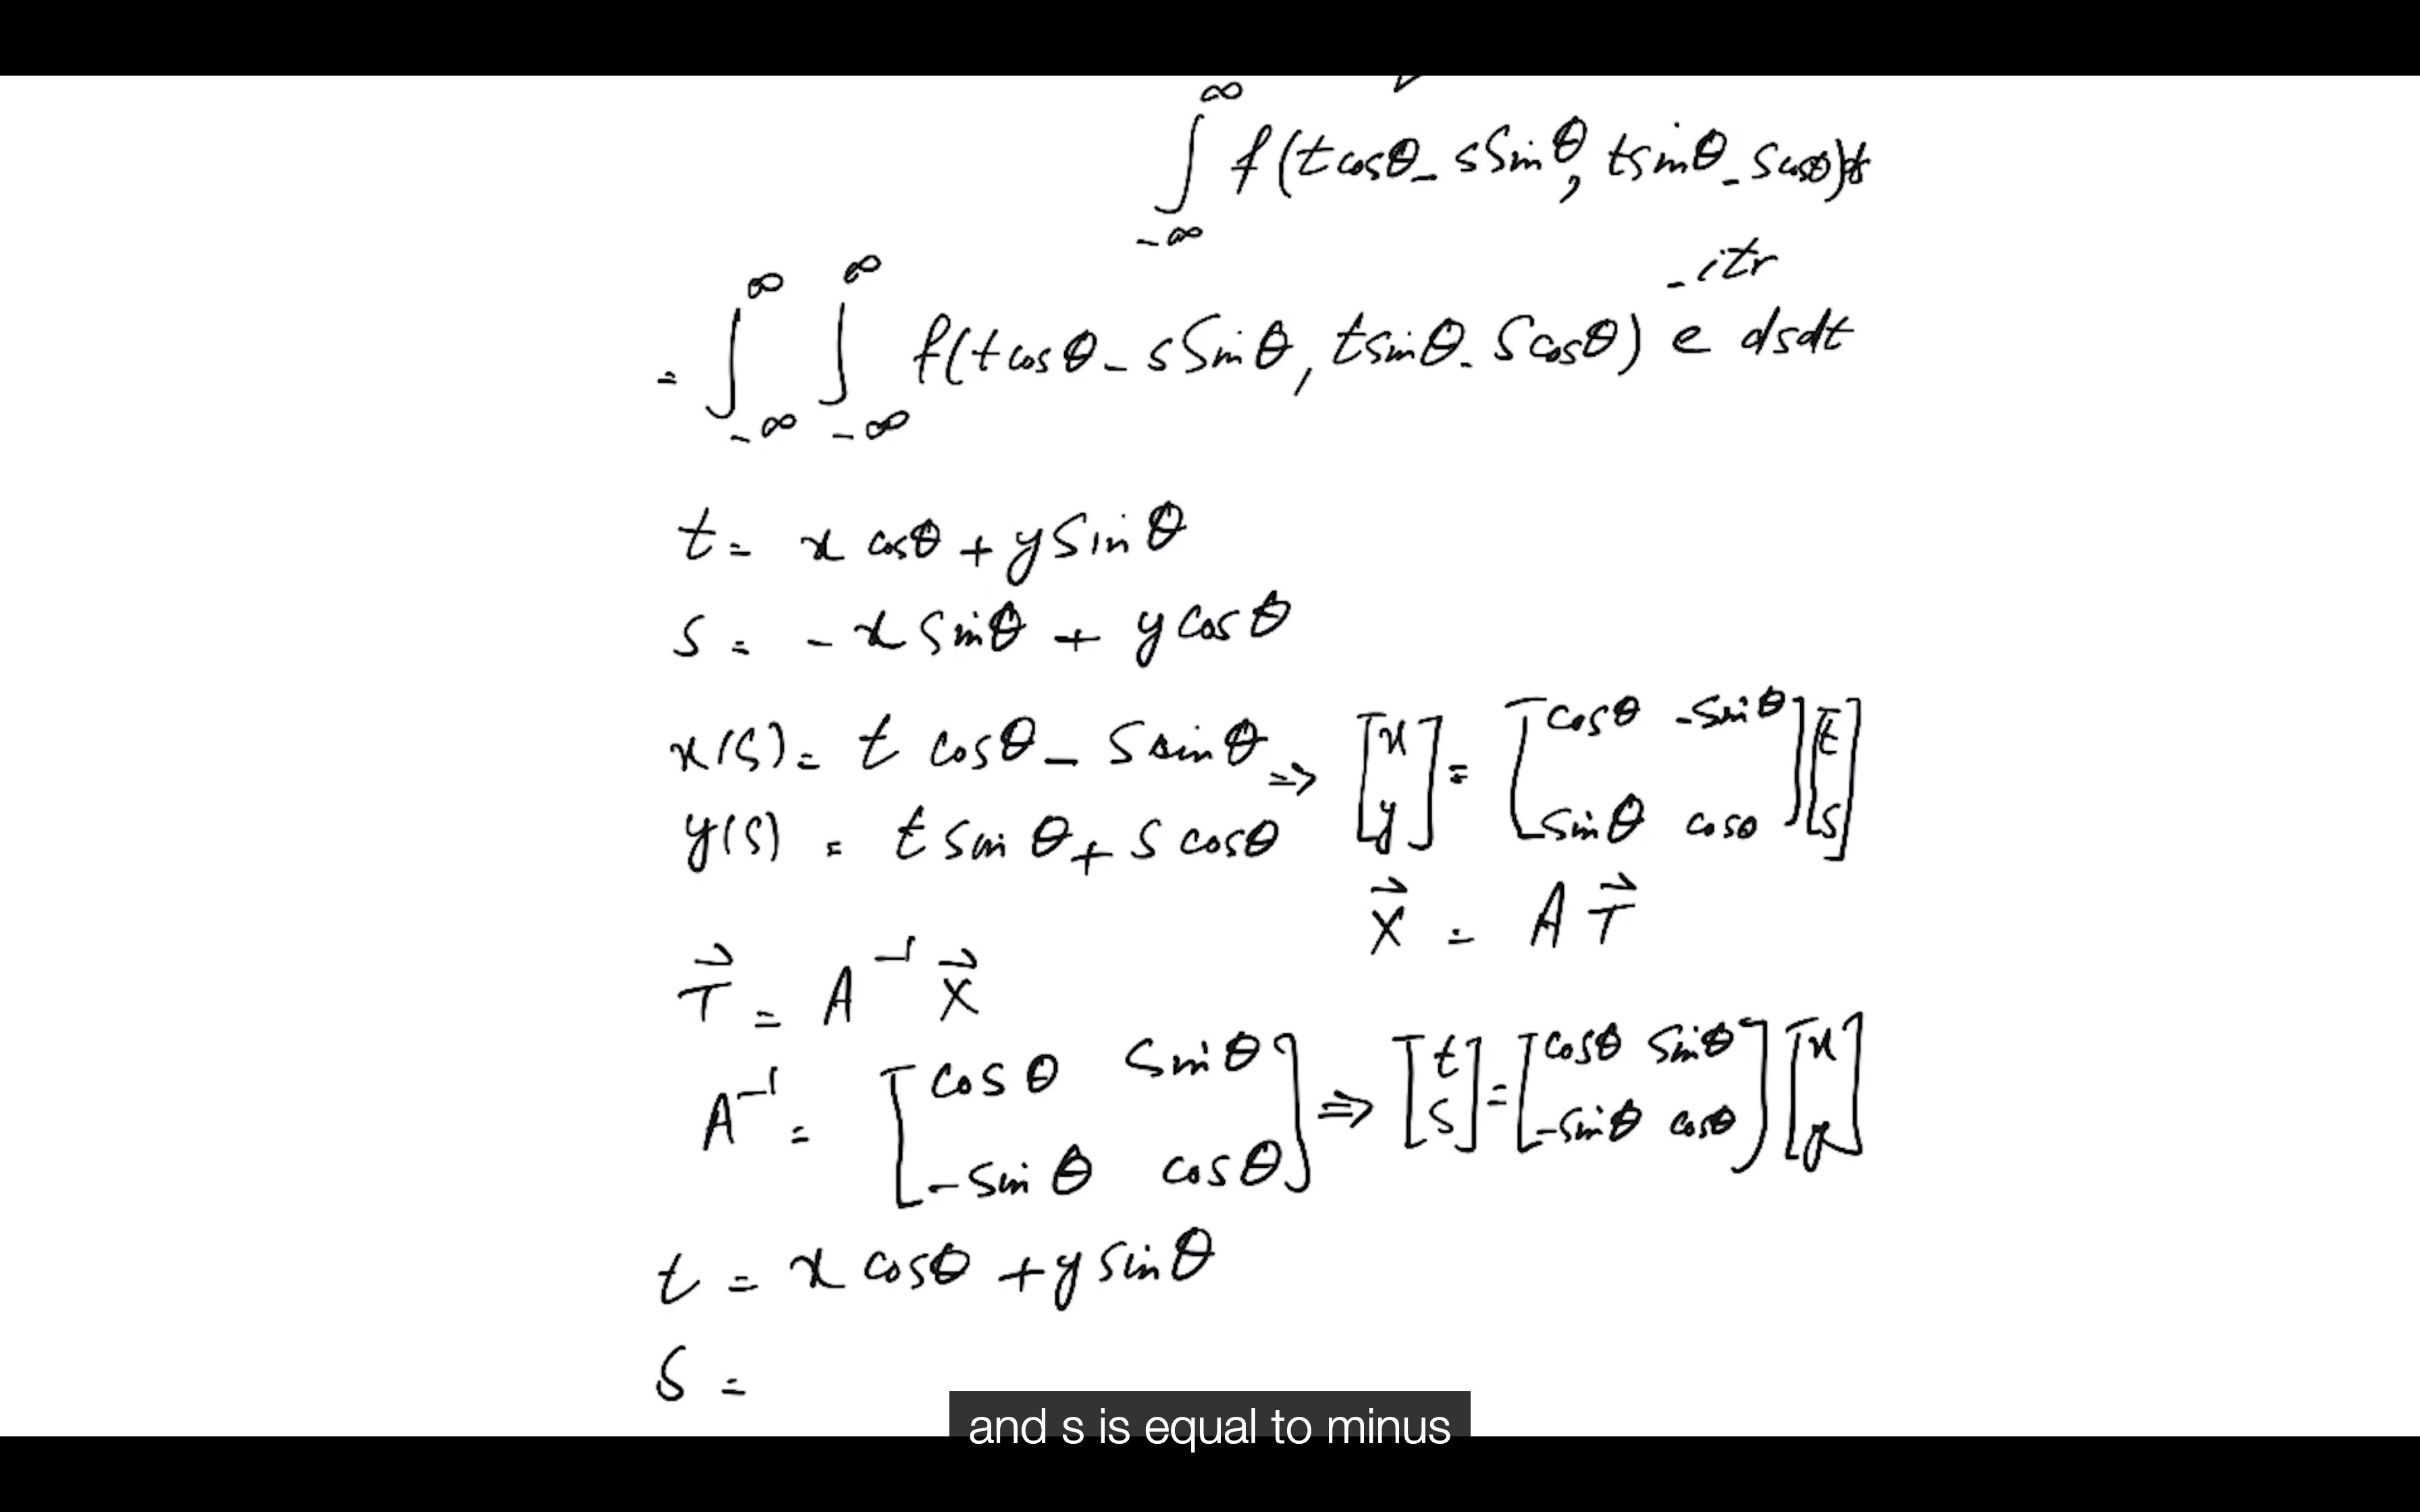 ∫_{-∞}^{∞} f(t cosθ - s Sinθ, t sinθ - s cosθ) ds
= ∫_{-∞}^{∞} ∫_{-∞}^{∞} f(t cosθ - s Sinθ, t sinθ - s cosθ) e^{-itr} ds dt
t = x cosθ + y Sinθ
s = - x Sinθ + y Cosθ
x(s) = t cosθ - s sinθ ⇒ [x y] = [cosθ -sinθ sinθ cosθ][t s]
y(s) = t sinθ + s cosθ
X⃗ = A T⃗
T⃗ = A⁻¹ X⃗
A⁻¹ = [cosθ sinθ -sinθ cosθ] ⇒ [t s] = [cosθ sinθ -sinθ cosθ][x y]
t = x cosθ + y sinθ
s =
and s is equal to minus